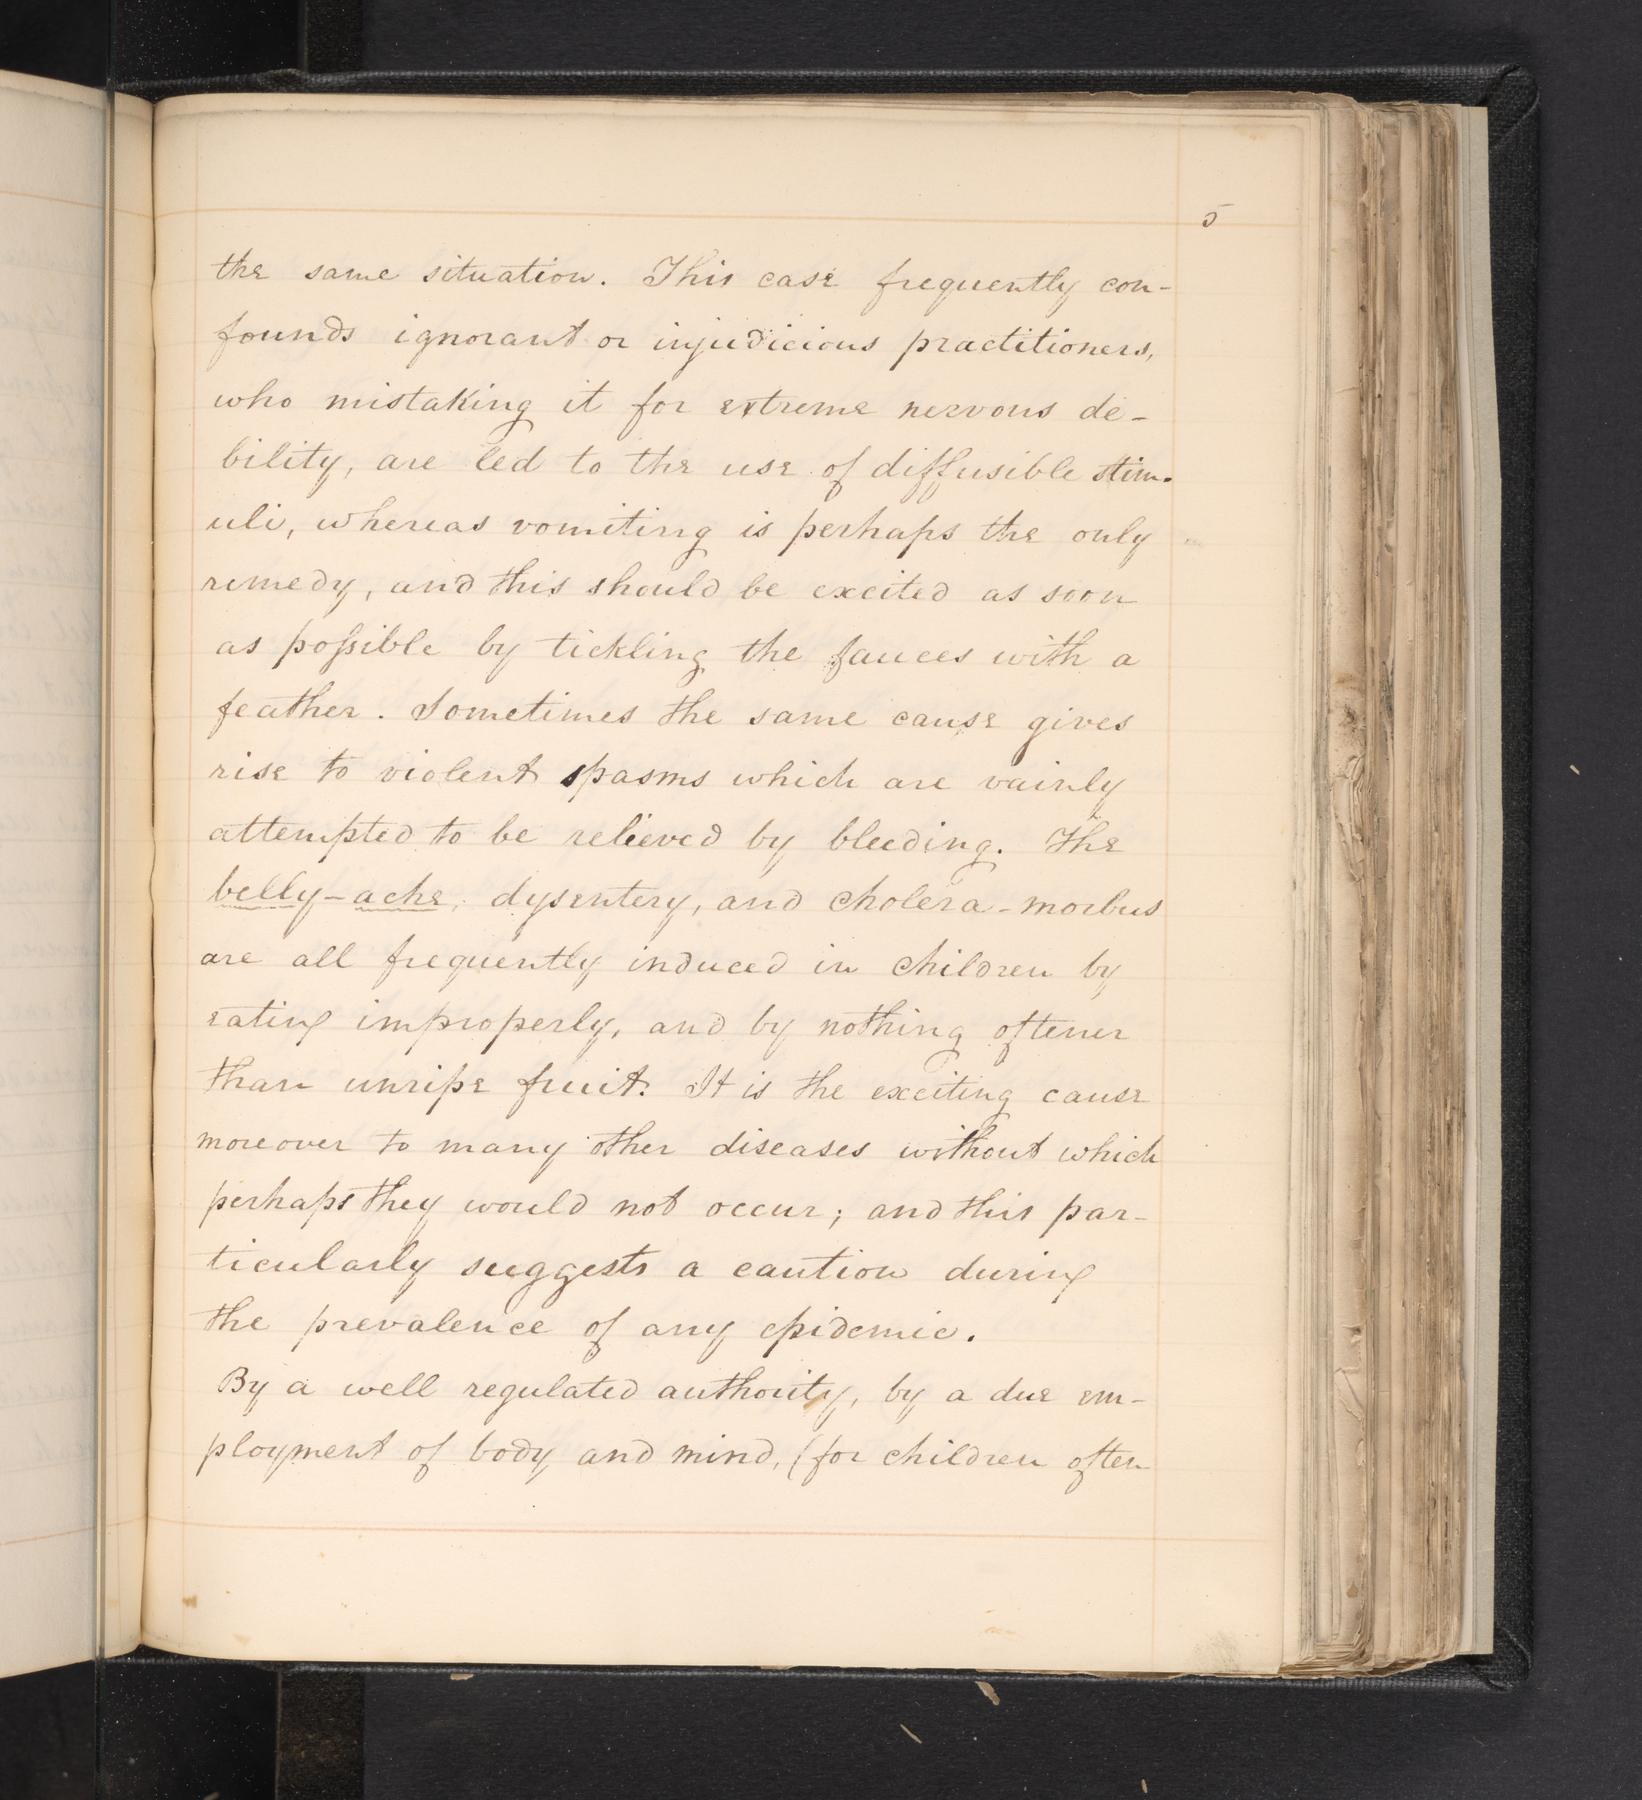 5
the same situation. This case frequently con-
founds ignorant or injudicious practitioners,
who mistaking it for extreme nervous de-
bility, are led to the use of diffusible stim-
uli, whereas vomiting is perhaps the only
remedy, and this should be excited as soon
as poſsible by tickling the fauces with a
feather. Sometimes the same cause gives
rise to violent spasms which are vainly
attempted to be relieved by bleeding. The
belly-ache, dysentery, and cholera-morbus
are all frequently induced in children by
eating improperly, and by nothing oftener
than unripe fruit. It is the exciting cause
moreover to many other diseases without which
perhaps they would not occur; and this par-
ticularly suggests a caution during
the prevalence of any epidemic.
By a well regulated authority, by a due em-
ployment of body and mind, (for children often